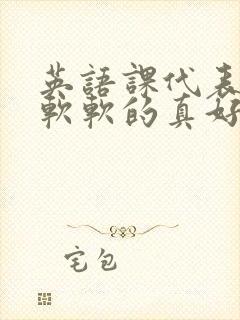 英語課代表
軟軟的真好
宅包